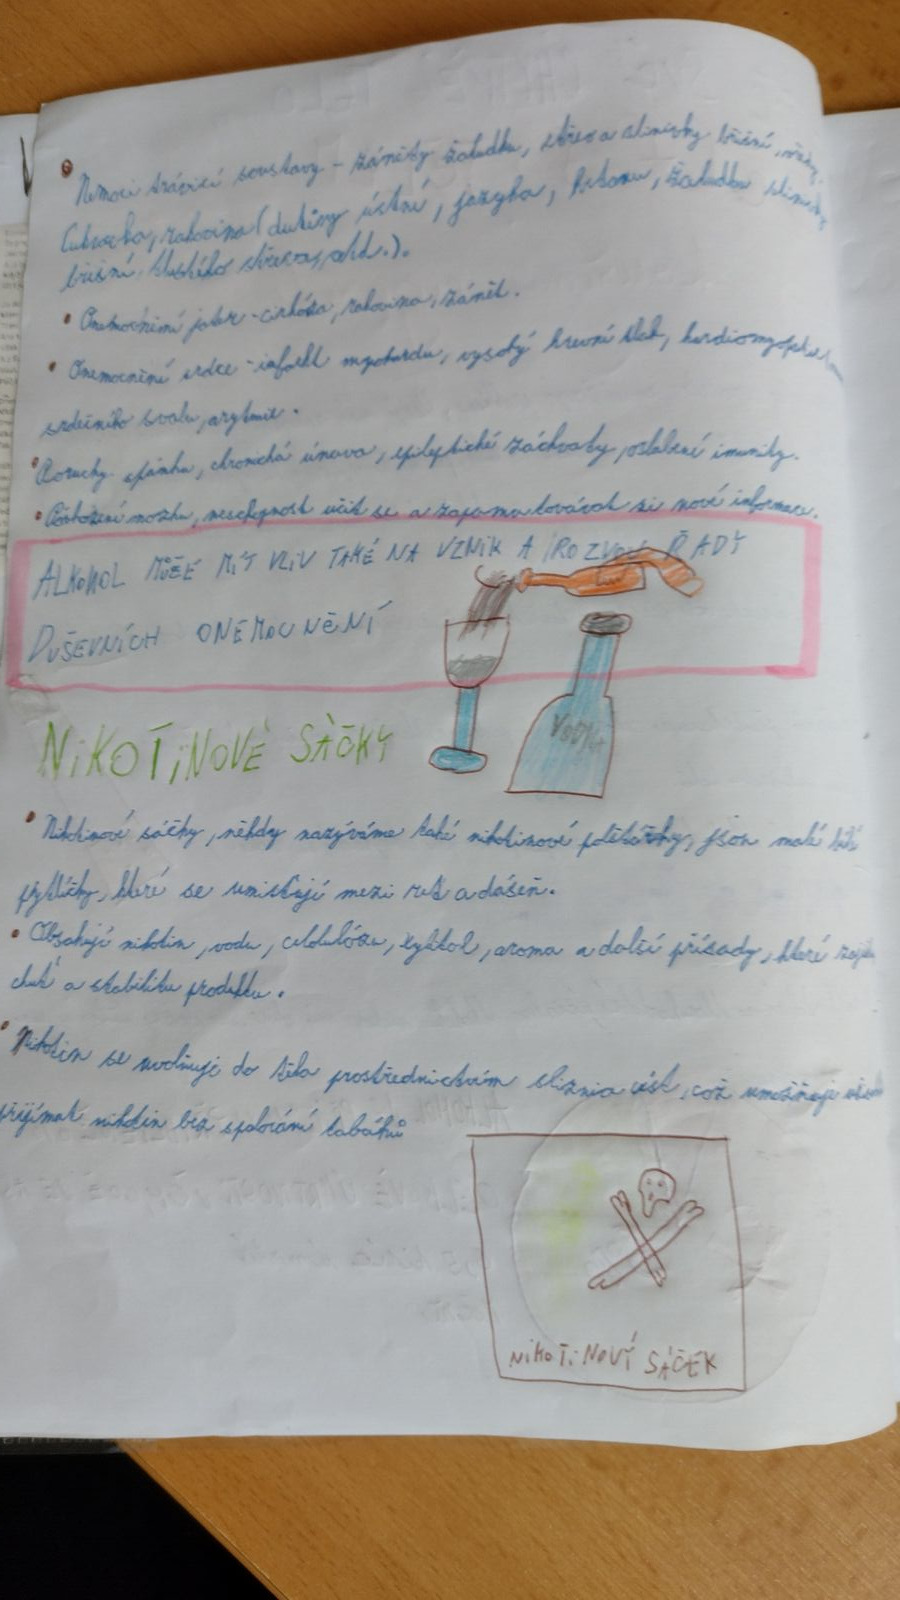 Nemoci trávicí soustavy - záněty žaludku, střev a slinivky břišní, vředy,
Cukrovka, rakovina (dutiny ústní, jazyka, hrtanu, žaludku slinivky
břišní, tlustého střeva, atd.).
• Onemocnění jater - cirhóza, rakovina, zánět.
• Onemocnění srdce - infarkt myokardu, vysoký krevní tlak,
srdečního svalu, arytmie.
• Poruchy spánku, chronická únava, epileptické záchvaty, oslabení imunity.
• Poškození mozku, neschopnost učit se a zapamatovávat si nové informace.
ALKOHOL MŮŽE MÍT VLIV TAKÉ NA VZNIK A ROZVOJ ŘADY
DUŠEVNÍCH ONEMOCNĚNÍ
VODKA
NiKOTiNOVÉ SÁČKY
• Nikotinové sáčky, někdy nazýváme také nikotinové polštářky, jsou malé bílé
pytlíčky, které se umisťují mezi ret a dáseň.
• Obsahují nikotin, vodu, celulózu, xylitol, aroma a další přísady, které
chuť a stabilitu produktu.
• Nikotin se uvolňuje do těla prostřednictvím sliznic úst, což umožňuje
přijímat nikotin bez spalování tabáku
NiKOTiNOVÝ SÁČEK